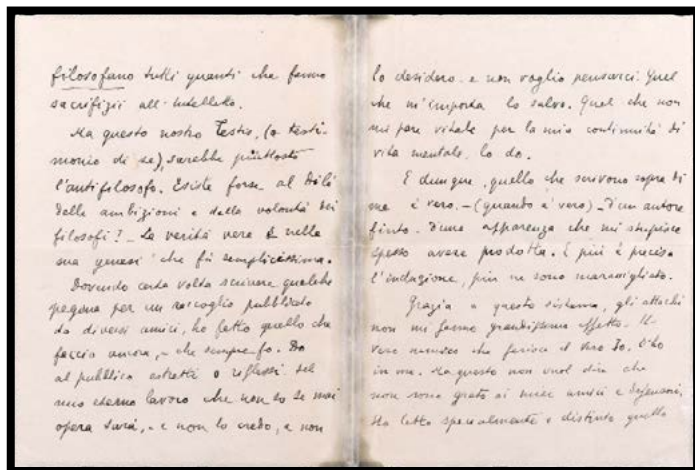 filosofano tutti quanti che fanno
sacrifizii all'intelletto.
Ma questo nostro Testis, (o testi-
monio di se), sarebbe piuttosto
l'antifilosofo. Esiste forse al di là
delle ambizioni e della volontà dei
filosofi? _ La verità vera è nella
sua genesi che fù semplicissima.
Dovendo certa volta scrivere qualche
pagina per un raccoglio pubblicato
da diversi amici, ho fatto quello che
faccio ancora, e che sempre fo. Do
al pubblico estratti o riflessi del
mio eterno lavoro che non so se mai
opera sarà, - e non lo credo, e non
lo desidero - e non voglio pensarci. Quel
che m'importa lo salvo. Quel che non
mi pare vitale per la mia continuità di
vita mentale, lo do.
E dunque, quello che scrivono sopra di
me è vero. - (quando è vero) - d'un autore
finto. d'una apparenza che mi stupisce
spesso avere prodotta. E più è precisa
l'indagine, più ne sono maravigliato.
Grazia a questo sistema, gli attachi
non mi fanno grandissimo effetto. Il
vero nemico che ferisce il vero Io, l'ho
in me. Ma questo non vuol dir che
non sono grato ai miei amici e difensori,
Ho letto specialmente e distinto quello